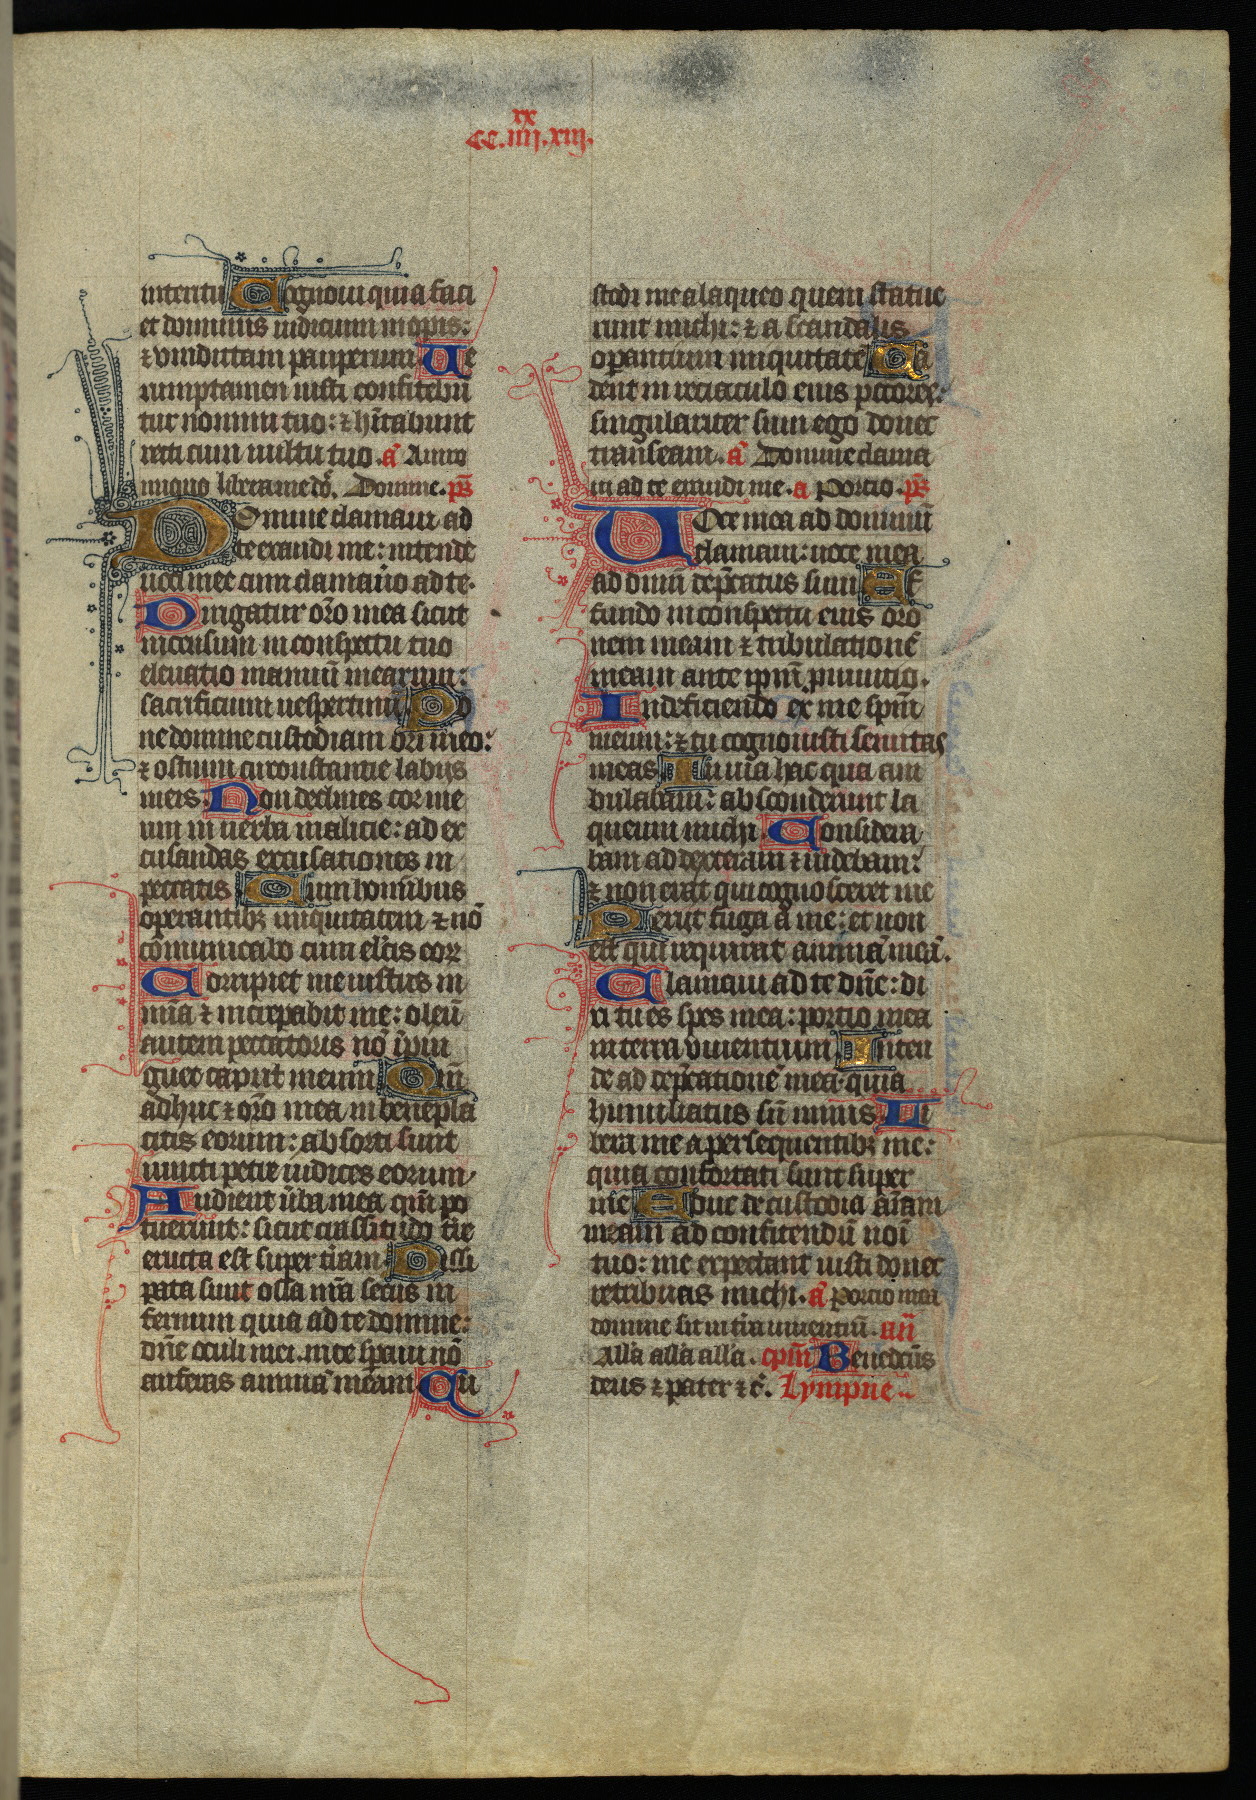 xx
CC.iiij.xiij.
interitu Cognoui quia faci
et dominus iudicium inopis:
⁊ vindictam pauperum Ue
rumptamen iusti confitebū
tur nomini tuo: ⁊ hītabunt
recti cum uultu tuo. a᷃ A uiro
iniquo libera me dn̄e. Domine. ps̄
Domine clamaui ad
te exaudi me: intende
uoci mee cum clamauio ad te.
Dirigatur orō mea sicut
incensum in conspectu tuo
eleuatio manuū mearum:
sacrificium uespertinū Po
ne domine custodiam ori meo:
⁊ ostium circonstantie labijs
meis. Non declines cor me
um in uerba malicie: ad ex
cusandas excusationes in
peccatis Cum hominibus
operantibꝫ iniquitatem ⁊ nō
comunicabo cum elc̄is eoꝝ
Corripiet me iustus in
mīa ⁊ increpabit me: oleū
autem peccatoris nō īpin
guet caput meum Qm̄
adhuc ⁊ orō mea in benepla
citis eorum: absorti sunt
iuncti petre iudices eorum
Audient ūba mea qm̄ po
tuerunt: sicut crassitudo tr̄e
eructa est super tr̄am Dissi
pata sunt ossa nr̄a secus in
fernum quia ad te domine:
dn̄e oculi mei in te speraui nō
auferas animā meam Cu
stodi me a laqueo quem statue
runt michi: ⁊ a scandalis
operantium iniquitatē Ca
dent in retiaculo eius pctores:
singulariter sum ego donec
transeam. a᷃ Domine clama
ui ad te exaudi me. a Portio. ps̄
Uoce mea ad dominū
clamaui: uoce mea
ad dn̄m dep̄catus sum Ef
fundo in conspectu eius orō
nem meam ⁊ tribulationē
meam ante ipm̄ pnuntio.
In deficiendo ex me spm̄
meum: ⁊ tu cognouisti semitas
meas In uia hac qua am
bulabam: absconderunt la
queum michi Considera
bam ad dexteram ⁊ uidebam:
⁊ non erat qui cognosceret me
Perijt fuga a me: et non
est qui requirat animā meā.
Clamaui ad te dn̄e: di
xi tu es spes mea: portio mea
in terra viuentium Inten
de ad dep̄cationē mea quia
humiliatus sū nimis Li
bera me a persequentibꝫ me:
quia confortati sunt super
me Educ de custodia aīam
meam ad confitendū noī
tuo: me expectant iusti donec
retribuas michi. a᷃ Portio mea
domine sit in tr̄a uiuentiū. an̄
Allā allā allā. cpm̄ Benedcūs
deus ⁊ pater ⁊ c̄. Lympne